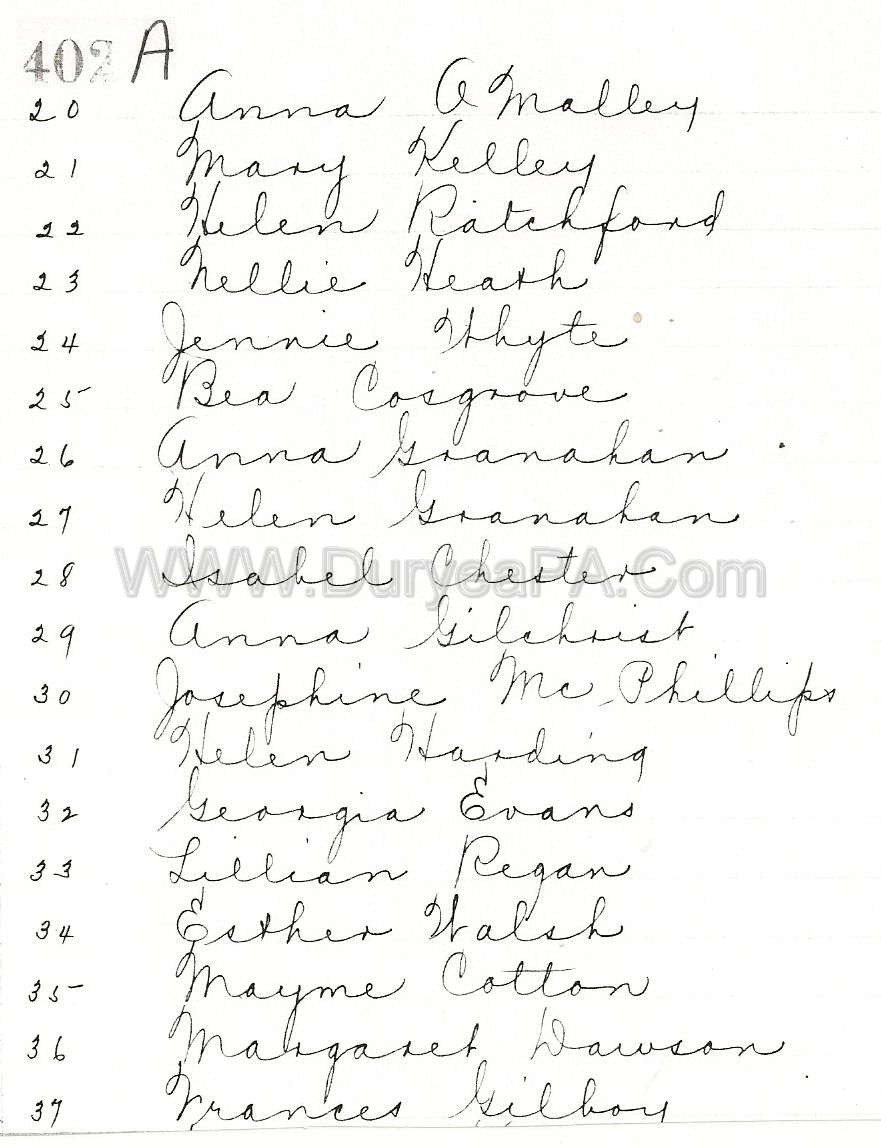 402 A
20 Anna O'Malley
21 Mary Kelley
22 Helen Ratchford
23 Nellie Heath
24 Jennie Whyte
25 Bea Cosgrove
26 Anna Granahan
27 Helen Granahan
WWW.DuryeaPA.Com
28 Isabel Chester
29 Anna Gilchrist
30 Josephine Mc Phillips
31 Helen Harding
32 Georgia Evans
33 Lillian Regan
34 Esther Walsh
35 Mayme Cotton
36 Margaret Dawson
37 Frances Gilboy